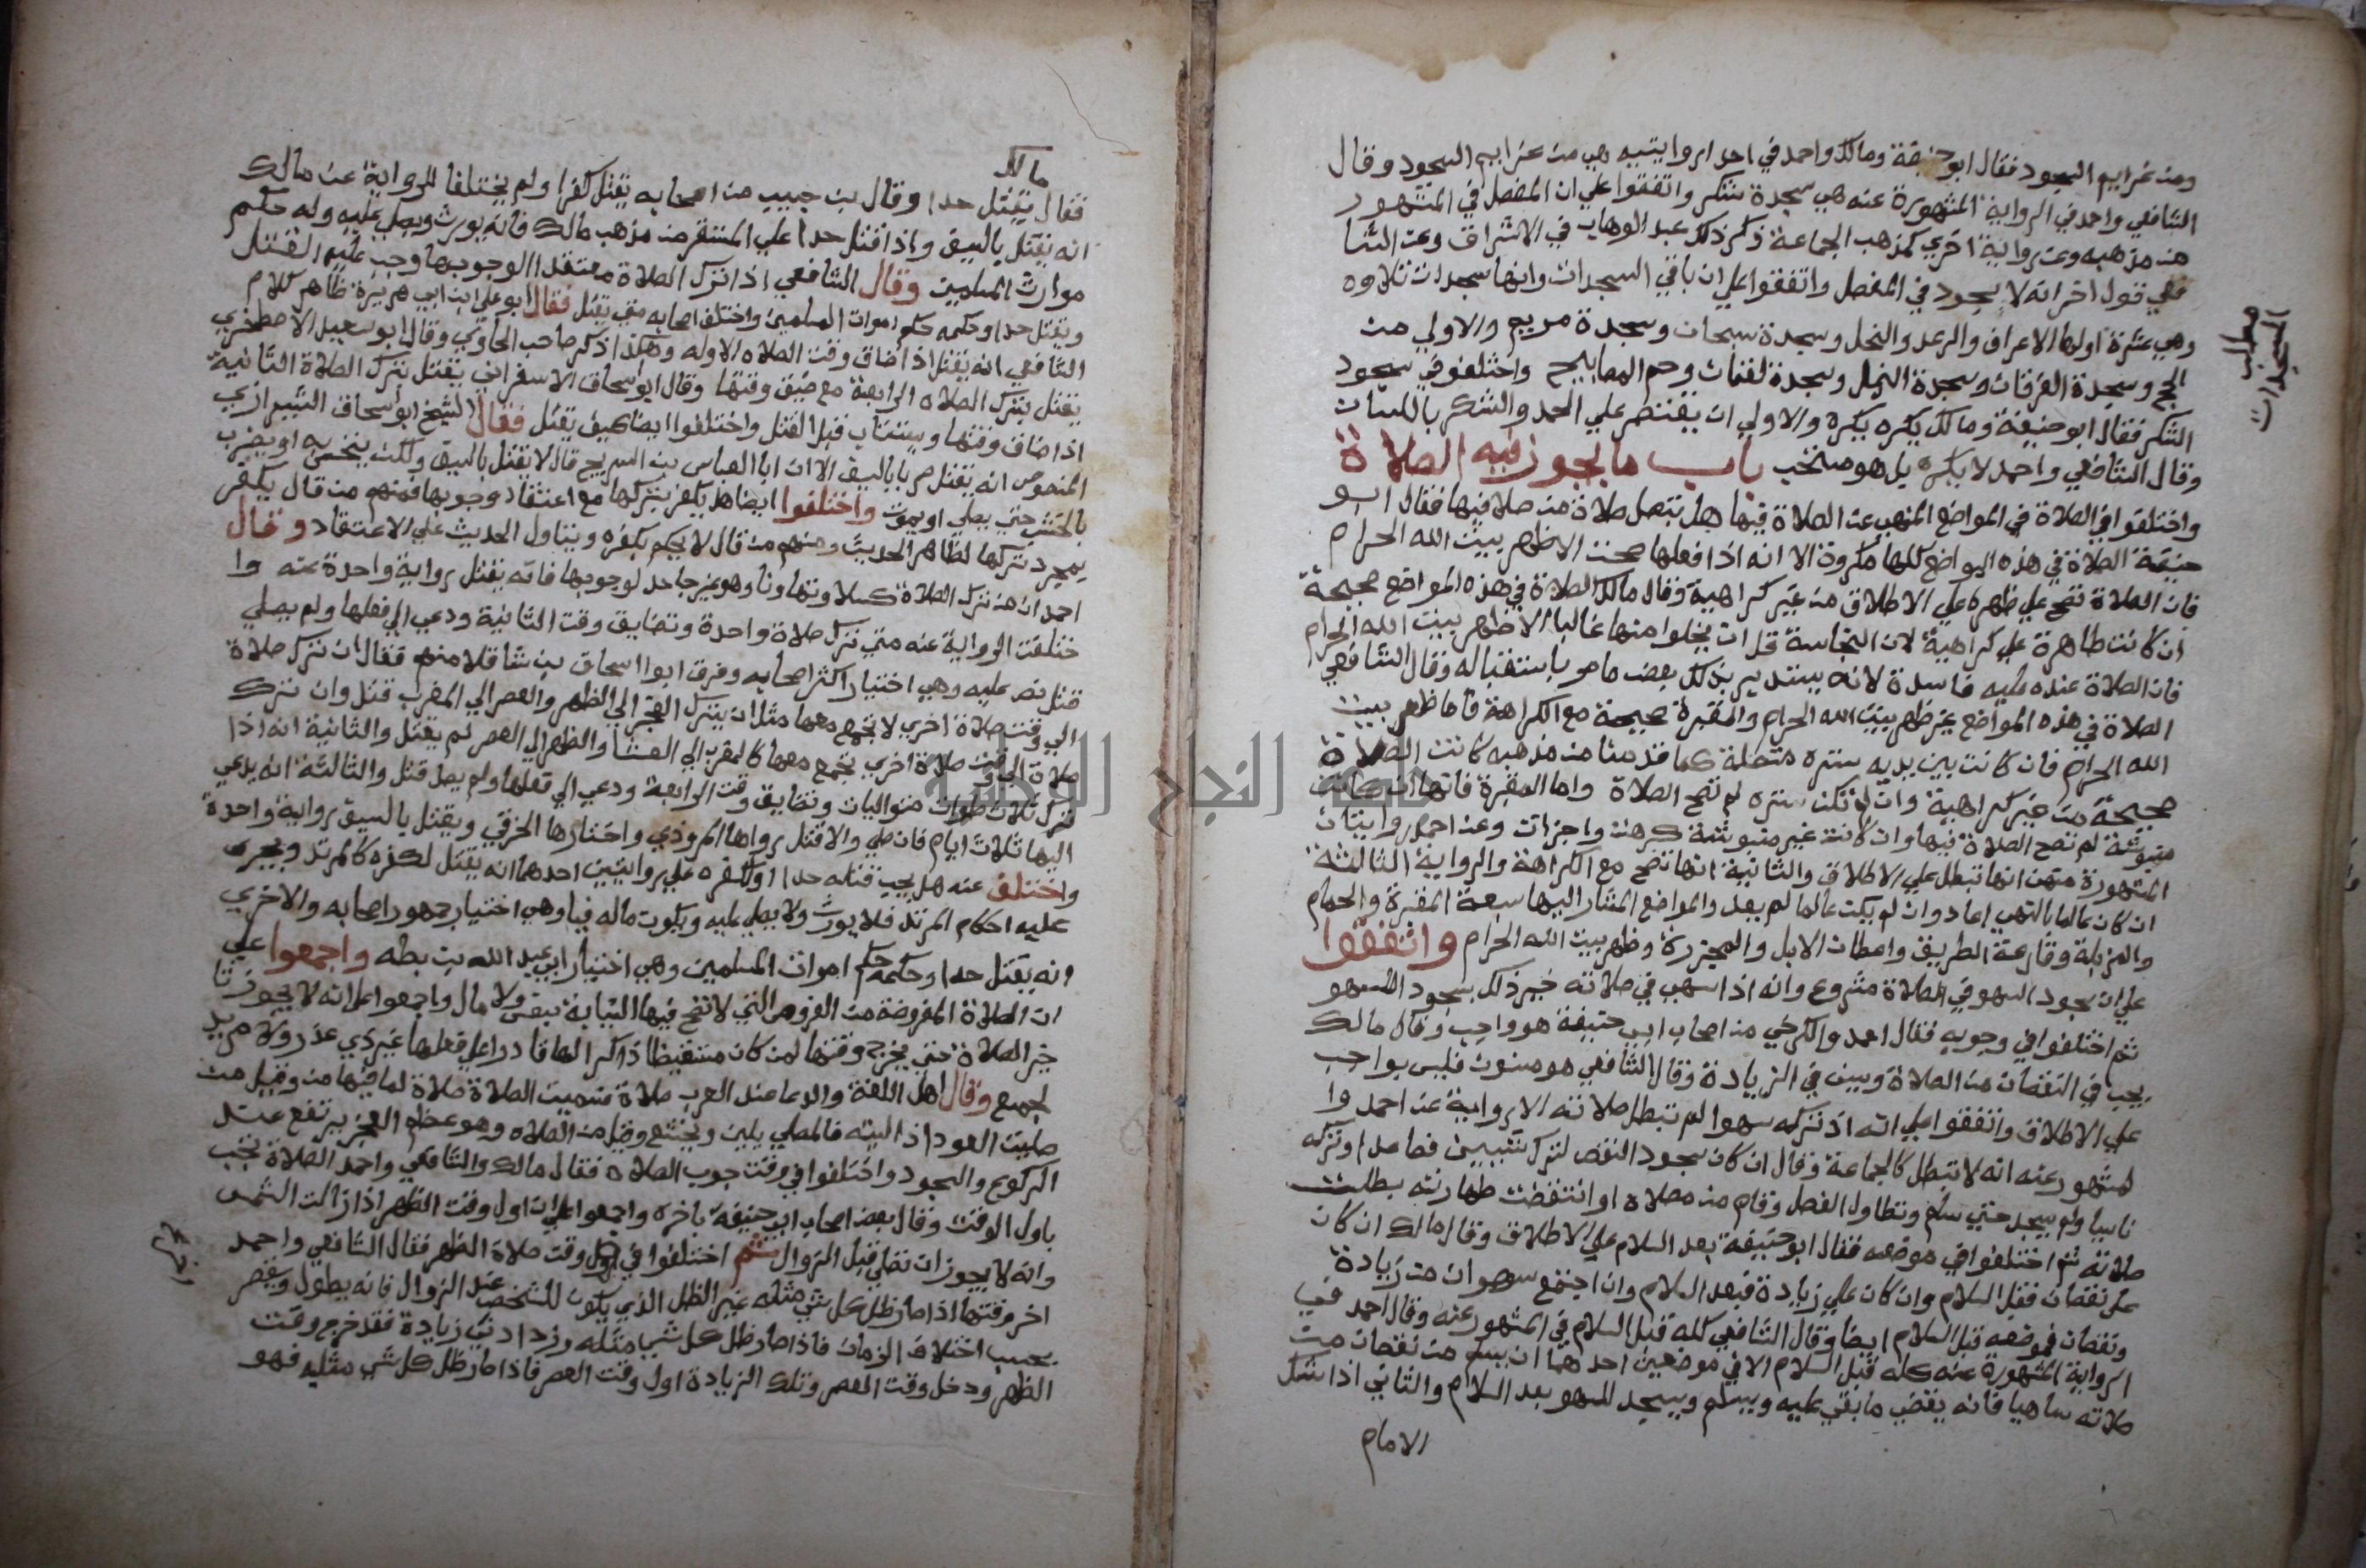 ومن عزايم السجود فقال ابو حنيفة ومالك واحمد في احد روايتيه هي من عزايم السجود وقال
الشافعي واحمد في الرواية المشهورة عنه هي سجدة شكر واتفقوا علي ان المفصل في المشهور
من مذهبه وعن رواية اخري كمذهب الجماعة ذكر ذلك عبد الوهاب في الاشراف وعن الشا
فعي قول اخر انه لا سجود في المفصل واتفقوا علي ان باقي السجدات وانها سجدات تلاوه
وهي عشرة اولها الاعراف والرعد والنحل وسجدة سبحان وسجدة مريم والاولي من
الحج وسجدة الفرقان وسجدة النمل وسجدة لقمان وحم المصابيح واختلفو في سجود
الشكر فقال ابو حنيفة ومالك يكره والاولي ان يقتصر علي الحمد والشكر باللسان
وقال الشافعي واحمد لا يكره بل هو مستحب باب ما يجوز فيه الصلاة
واختلفوا في الصلاة في المواضع المنهي عن الصلاة فيها هل تبطل صلاة من صلا فيها فقال ابو
حنيفة الصلاة في هذه المواضع كلها مكروة الا انه اذا فعلها صحت الا ظهر بيت الله الحرام
فان الصلاة تصح علي ظهره علي الاطلاق من غير كراهية وقال مالك الصلاة في هذه المواضع صحيحة
ان كانت طاهرة علي كراهية لان النجاسة قل ان يخلوا منها غالبا الا ظهر بيت الله الحرام
فان الصلاة عنده عليه فاسدة لانه يستدبر بذلك بعض ما هو باستقباله وقال الشافعي
الصلاة في هذه المواضع غير ظهر بيت الله الحرام والمقبرة صحيحة مع الكراهة فاما ظهر بيت
الله الحرام فان كانت بين يديه ستره متصلة كما قدمنا من مذهبه كانت الصلاة
صحيحة من غير كراهية وان لم تكن ستره لم تصح الصلاة واما المقبرة فانها ان كانت
منبوشة لم تصح الصلاة فيها وان كانت غير منبوشة كرهت واجزات وعن احمد روايتان
المشهورة منهن انها تبطل علي الاطلاق والثانية انها تصح مع الكراهة والرواية الثالثة
ان كان عالما بالنهي اعاد وان لم يكن عالما لم يعد والمواضع المشار اليها سبعة المقبرة والحمام
والمزبلة وقارعة الطريق واعطان الابل والمجزرة وظهر بيت الله الحرام واتفقوا
علي ان سجود السهو في الصلاة مشروع وانه اذا سهي في صلاته جبر ذلك بسجود السهو
ثم اختلفوا في وجوبه فقال احمد والكرخي من اصحاب ابي حنيفة هو واجب وقال مالك
يجب في النقصان من الصلاة ويسن في الزيادة وقال الشافعي هو مسنون فليس بواجب
علي الاطلاق واتفقوا علي انه اذ تركه سهوا لم تبطل صلاته الا رواية عن احمد وا
لمشهور عنه انه لا تبطل كالجماعة وقال ان كان سجود النقص لترك شيئين فصاعدا وتركه
ناسيا ولم يسجد حتي سلم وتطاول الفصل وقام من مصلاه او انتقضت طهارته بطلت
صلاته ثم اختلفوا في موضعه فقال ابو حنيفة بعد السلام علي الاطلاق وقال مالك ان كان
عن نقصان فقبل السلام وان كان علي زيادة فبعد السلام وان اجتمع سهوان من زيادة
ونقصان فموضعه قبل السلام ايضا وقال الشافعي كله قبل السلام في المشهور عنه وقال احمد في
الرواية المشهورة عنه كله قبل السلام الا في موضعين احدهما ان يسلم من نقصان من
صلاته ساهيا فانه يقضي ما بقي عليه ويسلم ويسجد للسهو بعد السلام والثاني اذا شك
الامام
مطلب
السجدات
مالك
فقال يقتل حدا وقال بن حبيب من اصحابه يقتل كفرا ولم يختلفا الرواية عن مالك
انه يقتل بالسيف واذا قتل حدا علي المستقر من مذهب مالك فانه يورث ويصلي عليه وله حكم
موارث المسلمين وقال الشافعي اذا ترك الصلاة معتقدا لوجوبها وجب عليه القتل
ويقتل حدا وحكمه حكم اموات المسلمين واختلف اصحابه متي يقتل فقال ابو علي ابن ابي هريرة ظاهر كلام
الشافعي انه يقتل اذا ضاق وقت الصلاه الاوله وهكذا ذكر صاحب الحاوي وقال ابو سعيد الاصطخري
يقتل بترك الصلاه الرابعة مع ضيق وقتها وقال ابو اسحاق الاسفرايني يقتل بترك الصلاة الثانية
اذا ضاق وقتها ويستتاب قبل القتل واختلفوا ايضا كيف يقتل فقال الشيخ ابو اسحاق الشيرازي
المنصوص انه يقتل ضربا بالسيف الا ان ابا العباس بن السريج قال لا يقتل بالسيف ولكن ينخس به او يضرب
بالخشب حتي يصلي او يموت واختلفوا ايضا هل يكفر بتركها مع اعتقاد وجوبها فمنهم من قال يكفر
بمجرد تركها لظاهر الحديث ومنهم من قال لا يحكم بكفره ويتاول الحديث علي الاعتقاد وقال
احمد ان من ترك الصلاة كسلا وتهاونا وهو غير جاحد لوجوبها فانه يقتل رواية واحدة عنه وا
ختلفت الرواية عنه متي ترك صلاة واحدة وتضايق وقت الثانية ودعي الي فعلها ولم يصلي
قتل نص عليه وهي اختيار اكثر اصحابه وفرق ابوا اسحاق بن شاقلا منهم فقال ان ترك صلاة
الي وقت صلاة اخري لا تجمع معها مثل ان يترك الفجر الي الظهر والعصر الي المغرب قتل وان ترك
صلاة الي وقت صلاة اخري تجمع معها كالمغرب الي العشا والظهر الي العصر لم يقتل والثانية انه اذا
ترك ثلاث صلوات متواليات وتضايق وقت الرابعة ودعي الي فعلها ولم يصل قتل والثالثة انه يدعي
اليها ثلاث ايام فان صلي والا قتل رواها المروذي واختارها الخرقي ويقتل بالسيف رواية واحدة
واختلف عنه هل يجب قتله حدا او لكفره علي روايتين احدهما انه يقتل لكفره كالمرتد ويجري
عليه احكام المرتد فلا يورث ولا يصلي عليه ويكون ماله فيا وهي اختيار جمهور اصحابه والاخري
انه يقتل حدا وحكمه حكم اموات المسلمين وهي اختيار ابي عبد الله بن بطه واجمعوا علي
ان الصلاة المفروضة من الفروض التي لا تصح فيها النيابة بنفس ولا مال واجمعوا علي انه لا يجوز تا
خير الصلاة حتي يخرج وقتها لمن كان مستيقظا ذاكرا لها قادرا علي فعلها غير ذي عذر ولا مريد
لجمع وقال اهل اللغة والدعا عند العرب صلاة فسميت الصلاة صلاة لما فيها من وقيل من
صليت العود اذا لينته فالمصلي يلين ويخشع وقيل من الصلاه وهو عظم العجز يرتفع عند
الركوع والسجود واختلفوا في وقت وجوب الصلاه فقال مالك والشافعي واحمد الصلاة تجب
باول الوقت وقال بعض اصحاب ابي حنيفة باخره واجمعوا علي ان اول وقت الظهر اذا زالت الشمس
وانه لا يجوز ان تصلي قبل الزوال ثم اختلفوا في وقت صلاة الظهر فقال الشافعي واحمد
اخر وقتها اذا صار ظل كل شي مثله غير الظل الذي يكون للشخص عند الزوال فانه يطول ويقصر
بحسب اختلاف الزمان فاذا صار ظل كل شي مثله وزاد ادني زيادة فقد خرج وقت
الظهر ودخل وقت العصر وتلك الزيادة اول وقت العصر فاذا صار ظل كل شي مثليه فهو
جامعة النجاح الوطنية